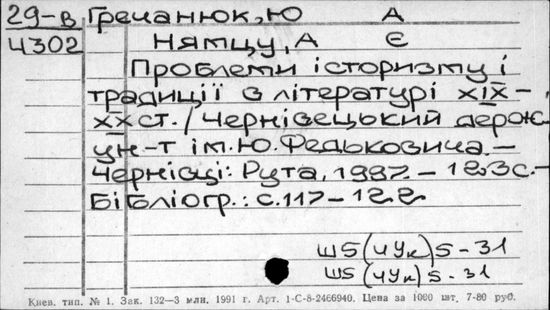 29-в Гречанюк, Ю А
4302 Нямцу, А Є
Проблеми історизму і
традиції в літературі XIX-
XX ст. / Чернівецький держ.
ун-т ім. Ю. Федьковича. –
Чернівці: Рута, 1997. – 123с. –
Бібліогр.: с. 117 – 122
Ш5(4Ук)5-31
Ш5(4Ук)5-31
Киев. тип. № 1. Зак. 132—3 млн. 1991 г. Арт. 1-С-8-2466940. Цена за 1000 шт. 7-80 руб.